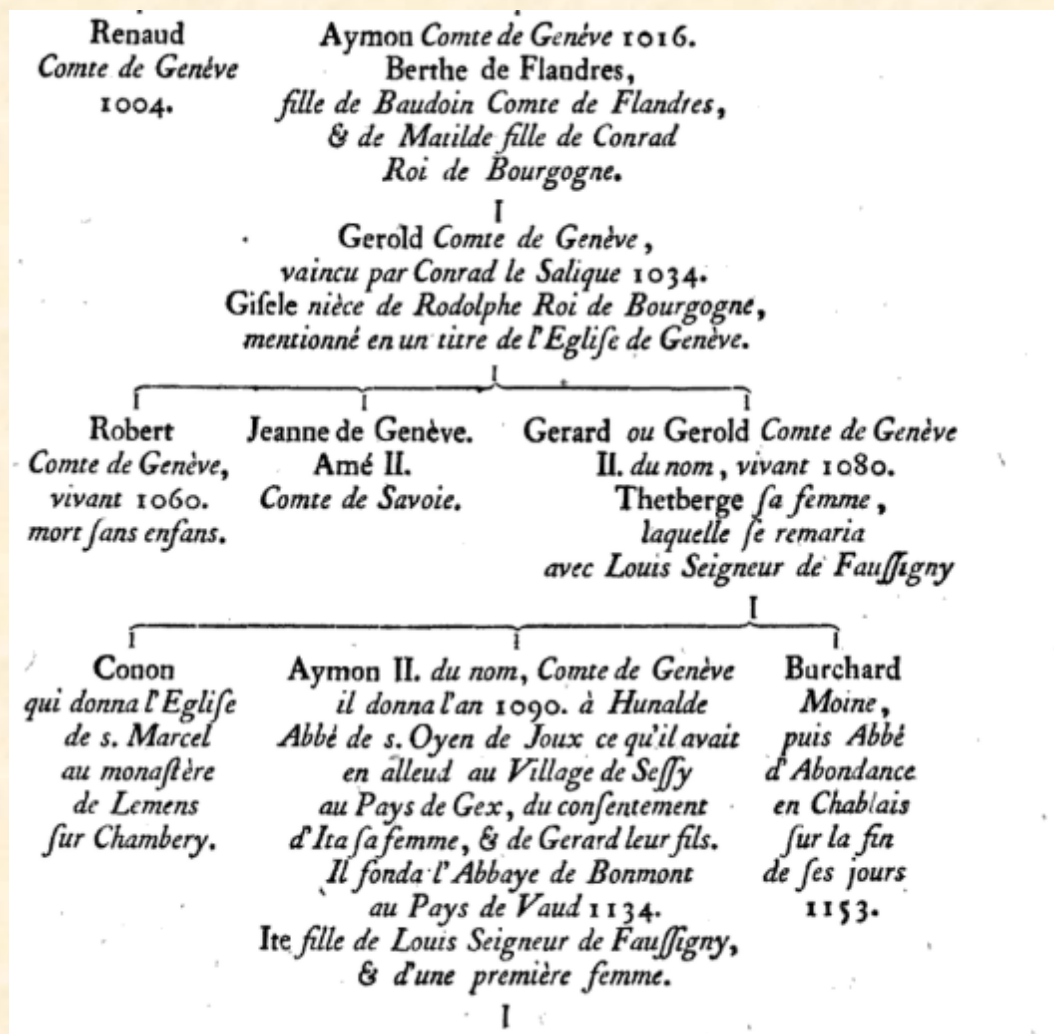 Renaud
Comte de Genève
1004.
Aymon Comte de Genève 1016.
Berthe de Flandres,
fille de Baudoin Comte de Flandres,
& de Matilde fille de Conrad
Roi de Bourgogne.
Gerold Comte de Genève,
vaincu par Conrad le Salique 1034.
Giſele nièce de Rodolphe Roi de Bourgogne,
mentionné en un titre de l'Egliſe de Genève.
Robert
Comte de Genève,
vivant 1060.
mort ſans enfans.
Jeanne de Genève.
Amé II.
Comte de Savoie.
Gerard ou Gerold Comte de Genève
II. du nom, vivant 1080.
Thetberge ſa femme,
laquelle ſe remaria
avec Louis Seigneur de Fauſſigny
Conon
qui donna l'Egliſe
de s. Marcel
au monaſtère
de Lemens
ſur Chambery.
Aymon II. du nom, Comte de Genève
il donna l'an 1090. à Hunalde
Abbé de s. Oyen de Joux ce qu'il avait
en alleud au Village de Seſſy
au Pays de Gex, du conſentement
d'Ita ſa femme, & de Gerard leur fils.
Il fonda l'Abbaye de Bonmont
au Pays de Vaud 1134.
Ite fille de Louis Seigneur de Fauſſigny,
& d'une première femme.
Burchard
Moine,
puis Abbé
d'Abondance
en Chablais
ſur la fin
de ſes jours
1153.